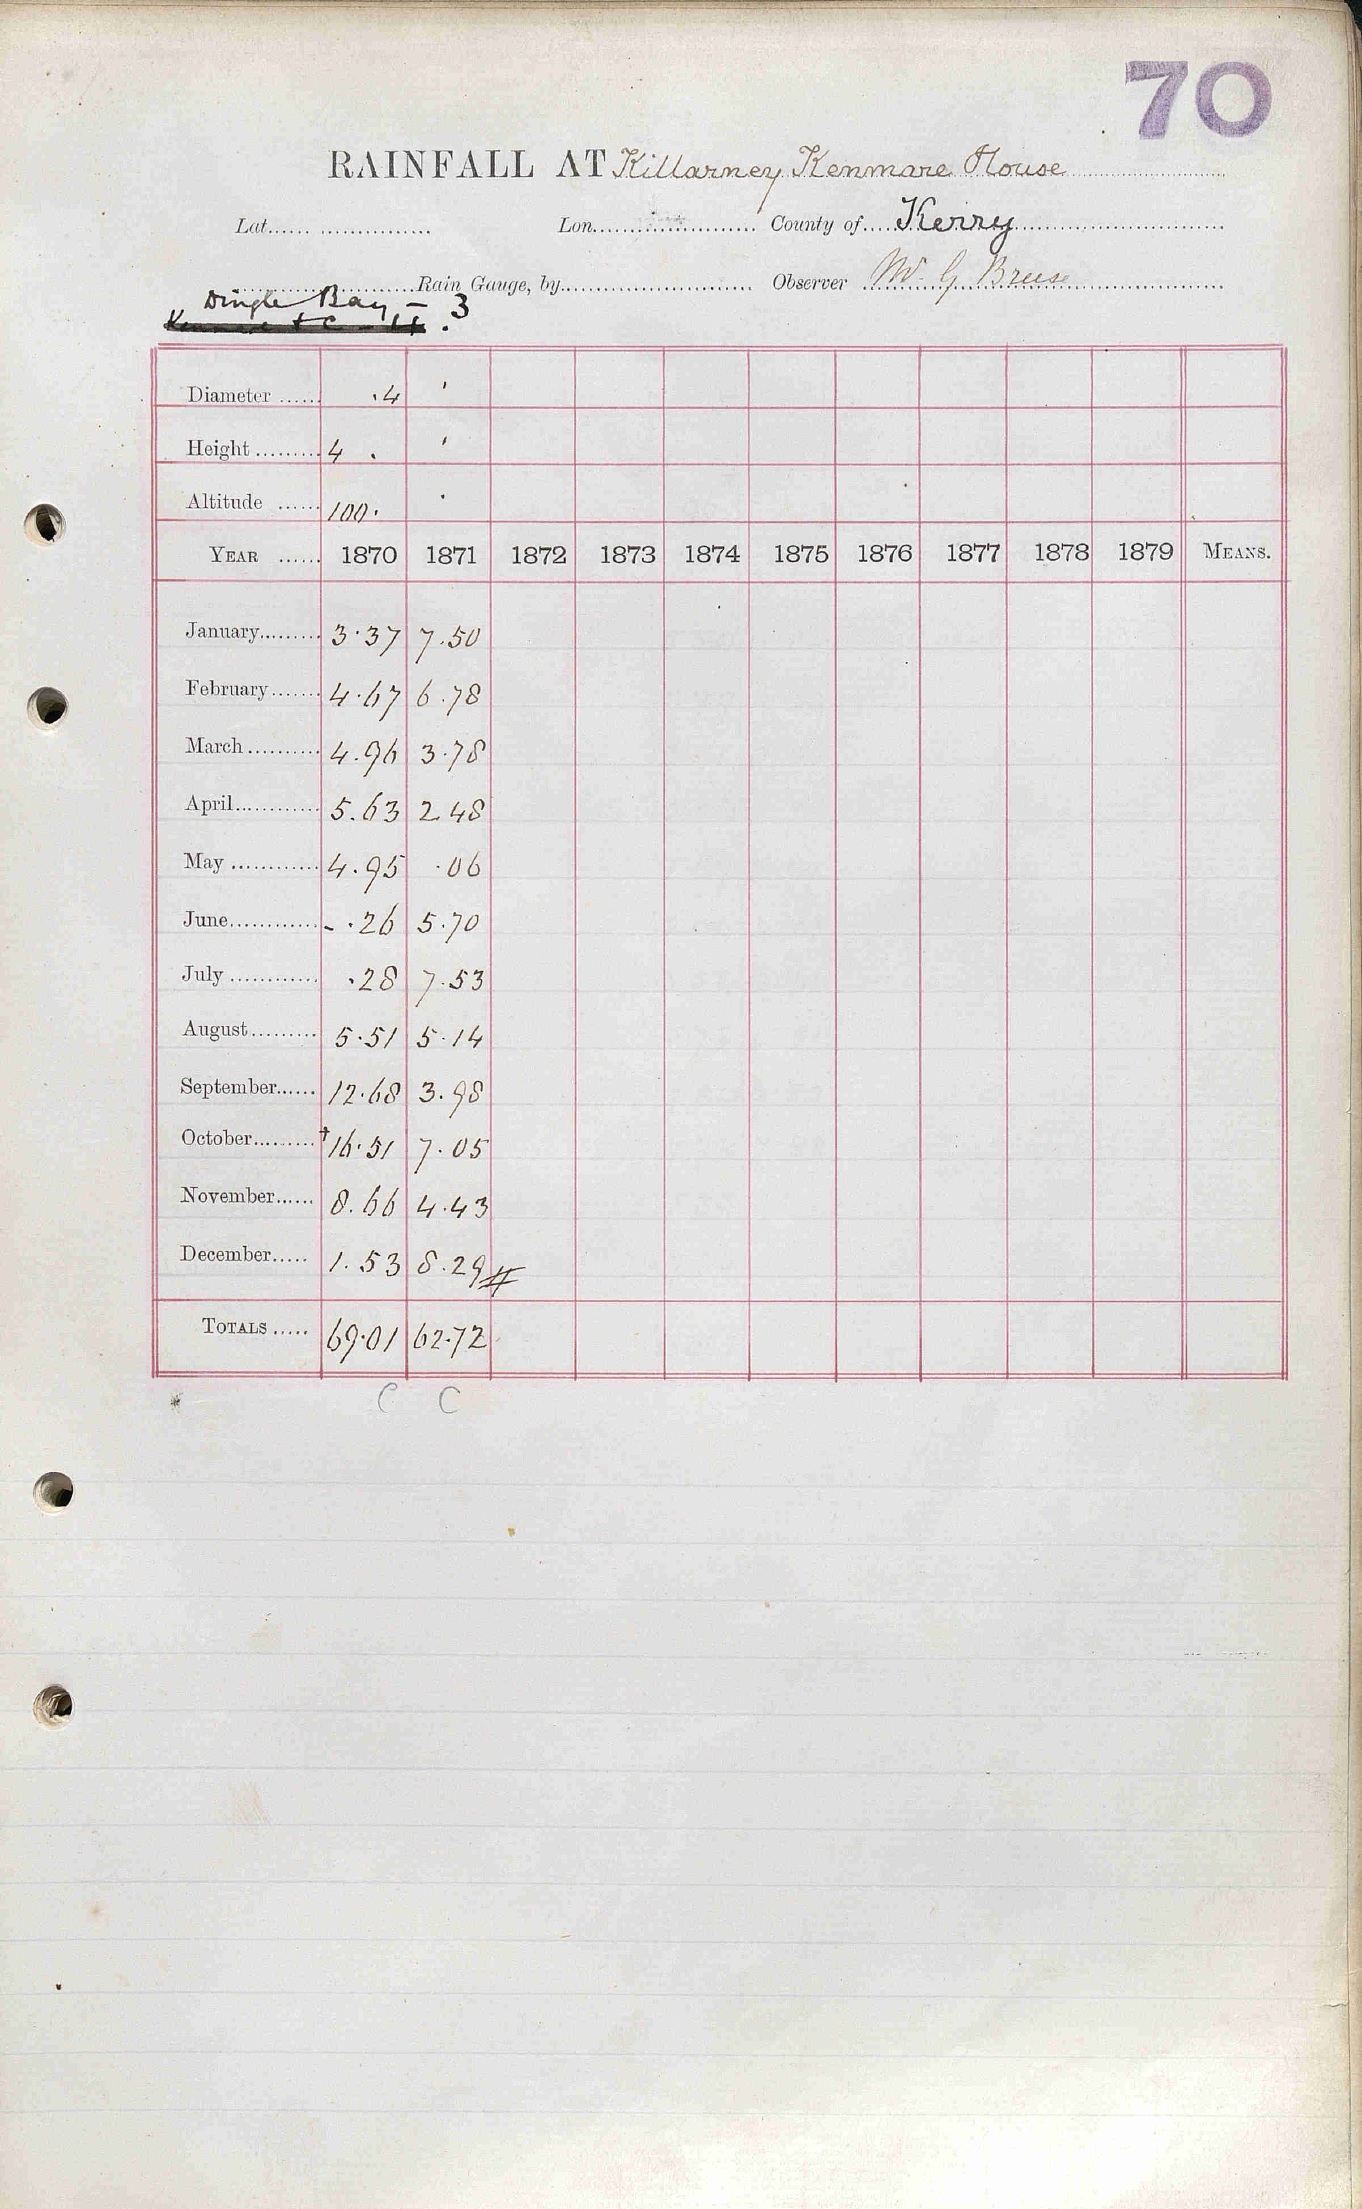 70
RAINFALL AT Killarney Kenmare House
Lat. Lon. County of Kerry
Rain Gauge, by Observer W. G. Bruse
Dingle Bay – 3
Diameter .4 '
Height 4 . '
Altitude 100. '
YEAR 1870 1871 1872 1873 1874 1875 1876 1877 1878 1879 MEANS.
January 3.37 7.50
February 4.67 6.78
March 4.96 3.78
April 5.63 2.48
May 4.95 .06
June - .26 5.70
July .28 7.53
August 5.51 5.14
September 12.68 3.98
October †16.51 7.05
November 8.66 4.43
December 1.53 8.29 #
TOTALS 69.01 62.72
C C